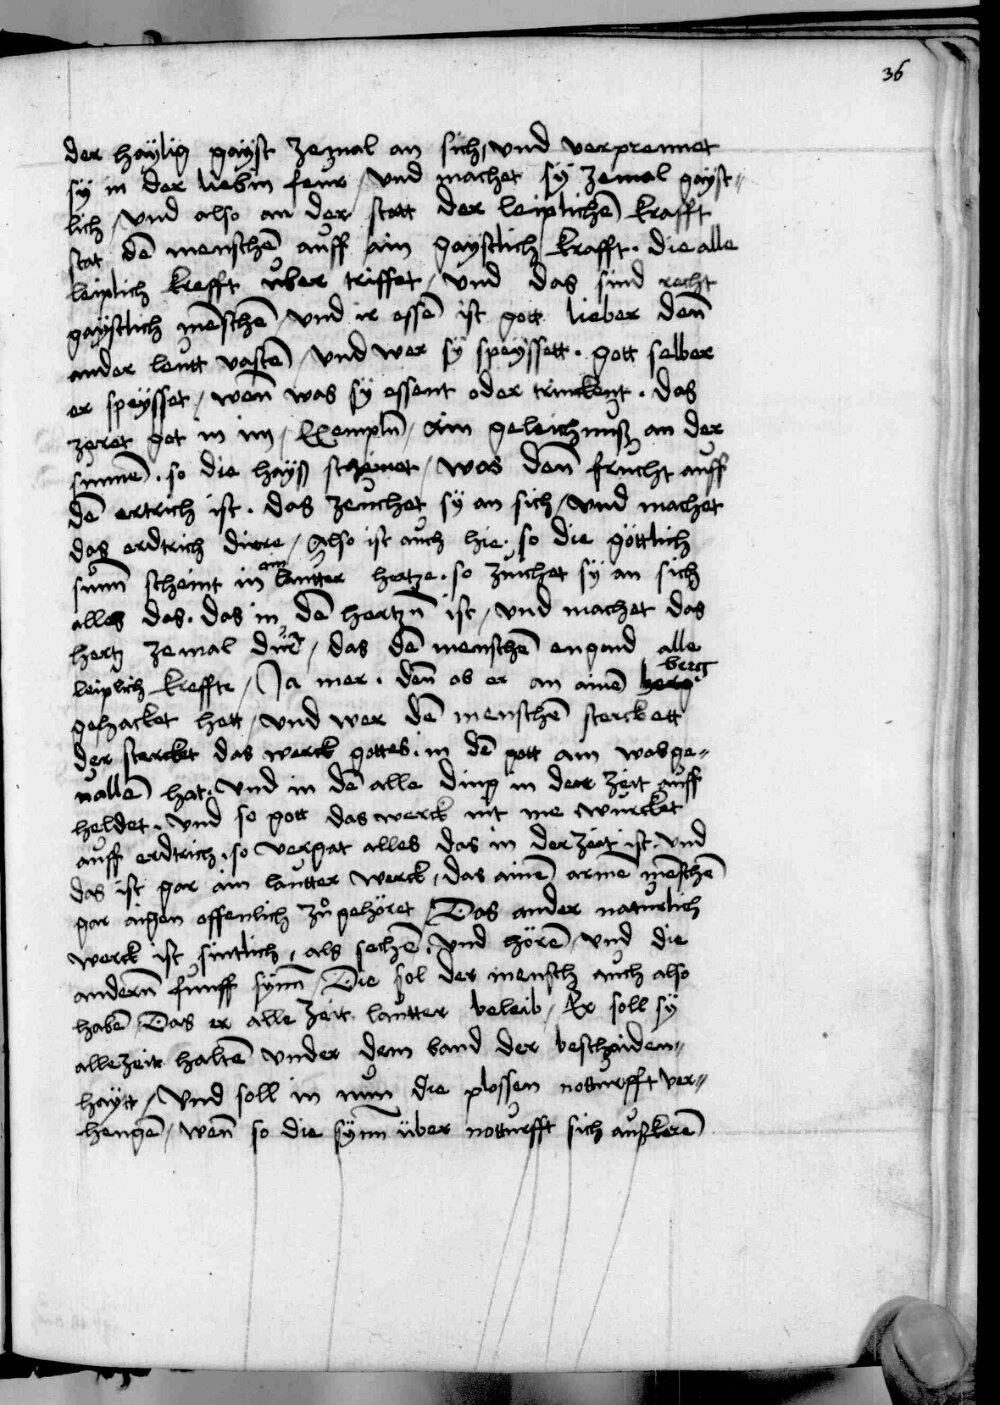 36
der haÿlig gaÿst zemal an sich / vnd verprennet
sÿ in der liebin feur / vnd machet sÿ zemal gayst„
lich / vnd also an der statt der leiplichē krafft
stat dē menschē auff ain gaystlich krafft . die alle
leiplich krefft über triffet / vnd das sind recht
gaÿstlich mēschē / vnd ir essē ist gott lieber den̄
ander leutt vastē / vnd wer sÿ speÿssett . gott selber
er speÿsset / wen̄ was sÿ essent oder trinckent . das
zeret got in im / Exempln̄ / Ain geleichnuß an der
sunnē . so die haÿß scheinet / was den̄ frucht auff
dē ertrich ist . das zeuchet sÿ an sich / vnd machet
das erdtrich dürre / Also ist auch hie . so die göttlich
sunn̄ scheint in ain lautter hertze . so zuichet sÿ an sich
alles das . das in dē hertzn̄ ist / vnd machet das
hertz zemal dürr / das dē menschē engend alle
leiplich kreffte / Ja mer . den̄ ob er an ainē berg
gehacket hett / vnd wer dē menschē sterckett
der stercket das werck gottes . in dē gott ain wolge„
uallē hat . vnd in dē alle ding in der zeit auff
heldet . vnd so gott das werck nit me würcket
auff erdtrich . so vergat alles das in der zeit ist . vnd
das ist gar ain lautter werck / das ainē arme mēschē
gar aigen offenlich zů gehöret / Das ander naturlich
werck ist sintlich / als sechē . vnd hörē / vnd die
andern̄ funff synn̄ / Die sol der mensch auch also
habē / Das er alle zeit lautter beleib / Er soll sÿ
allezeit haltē vnder dem band der beschaiden„
haÿtt / vnd soll in nun die plossen notturfft ver„
hengē / wen̄ so die sÿnn̄ über notturfft sich außkerē